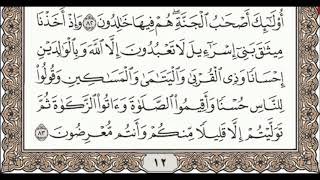 أُوْلَٰٓئِكَ أَصۡحَٰبُ ٱلۡجَنَّةِۖ هُمۡ فِيهَا خَٰلِدُونَ ٨٢ وَإِذۡ أَخَذۡنَا
مِيثَٰقَ بَنِيٓ إِسۡرَٰٓءِيلَ لَا تَعۡبُدُونَ إِلَّا ٱللَّهَ وَبِٱلۡوَٰلِدَيۡنِ
إِحۡسَانٗا وَذِي ٱلۡقُرۡبَىٰ وَٱلۡيَتَٰمَىٰ وَٱلۡمَسَٰكِينِ وَقُولُواْ
لِلنَّاسِ حُسۡنٗا وَأَقِيمُواْ ٱلصَّلَوٰةَ وَءَاتُواْ ٱلزَّكَوٰةَ ثُمَّ
تَوَلَّيۡتُمۡ إِلَّا قَلِيلٗا مِّنكُمۡ وَأَنتُم مُّعۡرِضُونَ ٨٣
١٢